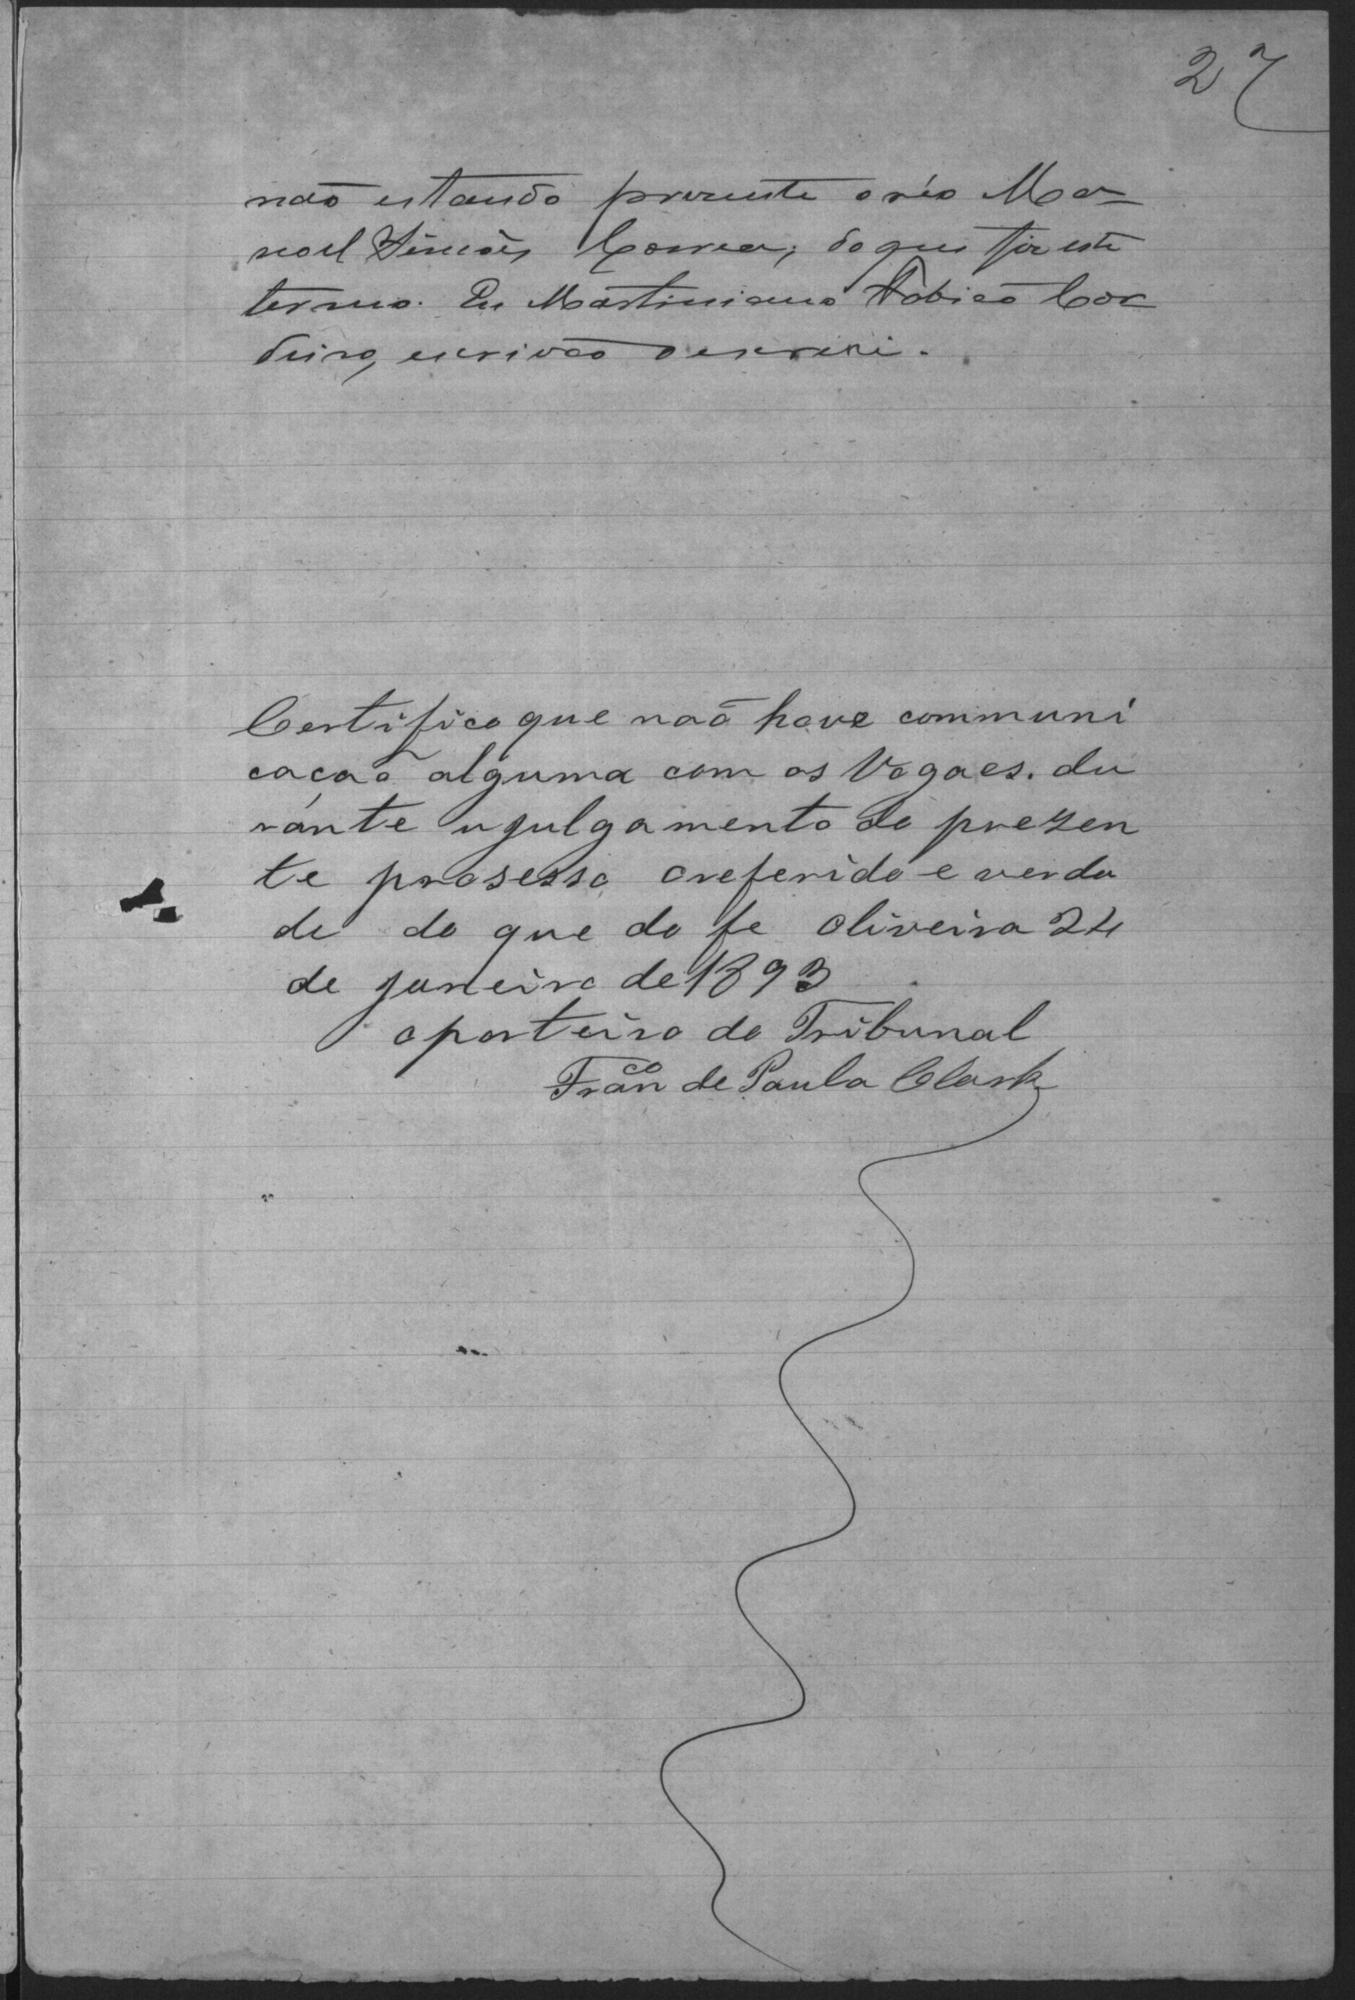 27
não estando presente o réo Ma-
noel Simões Correa; do que fiz este
termo. Eu Martiniano Fabião Cor
deiro, escrivão o escrevi.
Certifico que naõ houve communi
cacaõ alguma com os Vogaes. du
rante u julgamento do prezen
te prosesso oreferido e verda
de do que do fe Oliveira 24
de janeiro de 1893
oporteiro do Tribunal
Franco de Paula Clark